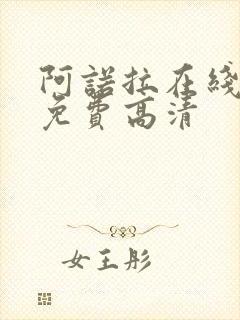 阿諾拉在綫
免費高清
女王彤